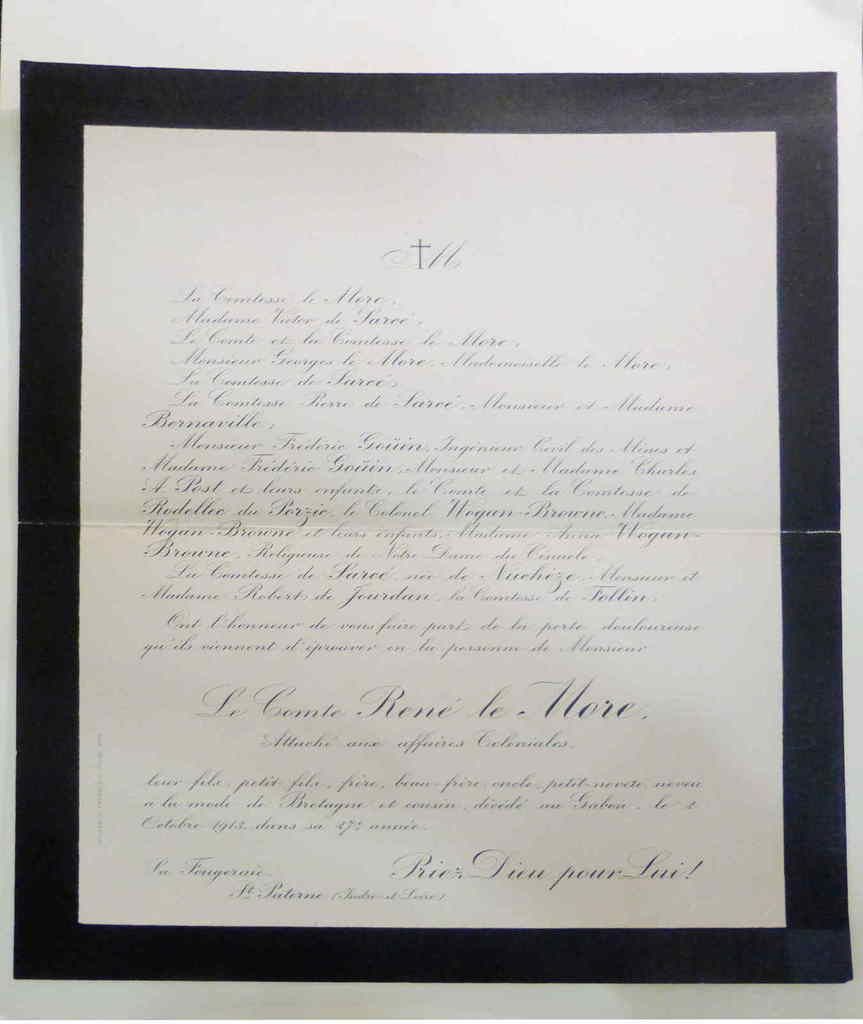 M
La Comtesse le More,
Madame Victor de Sarcé,
Le Comte et la Comtesse le More,
Monsieur Georges le More, Mademoiselle le More,
La Comtesse de Sarcé,
La Comtesse Pierre de Sarcé, Monsieur et Madame
Bernaville,
Monsieur Frédéric Goüin, Ingénieur Civil des Mines et
Madame Frédéric Goüin, Monsieur et Madame Charles
A. Post et leurs enfants, le Comte et la Comtesse de
Rodellec du Porzic, le Colonel Wogan-Browne, Madame
Wogan-Browne et leurs enfants, Madame Anna Wogan-
Browne, Religieuse de Notre Dame du Cénacle,
La Comtesse de Sarcé, née de Nuchèze, Monsieur et
Madame Robert de Jourdan, la Comtesse de Follin,
Ont l'honneur de vous faire part de la perte douloureuse
qu'ils viennent d'éprouver en la personne de Monsieur
Le Comte René le More,
Attaché aux affaires Coloniales,
leur fils, petit-fils, frère, beau-frère, oncle, petit-neveu, neveu
à la mode de Bretagne et cousin, décédé au Gabon, le 2
Octobre 1913, dans sa 27e année.
Priez Dieu pour Lui!
La Fougeraie
St Paterne (Indre-et-Loire)